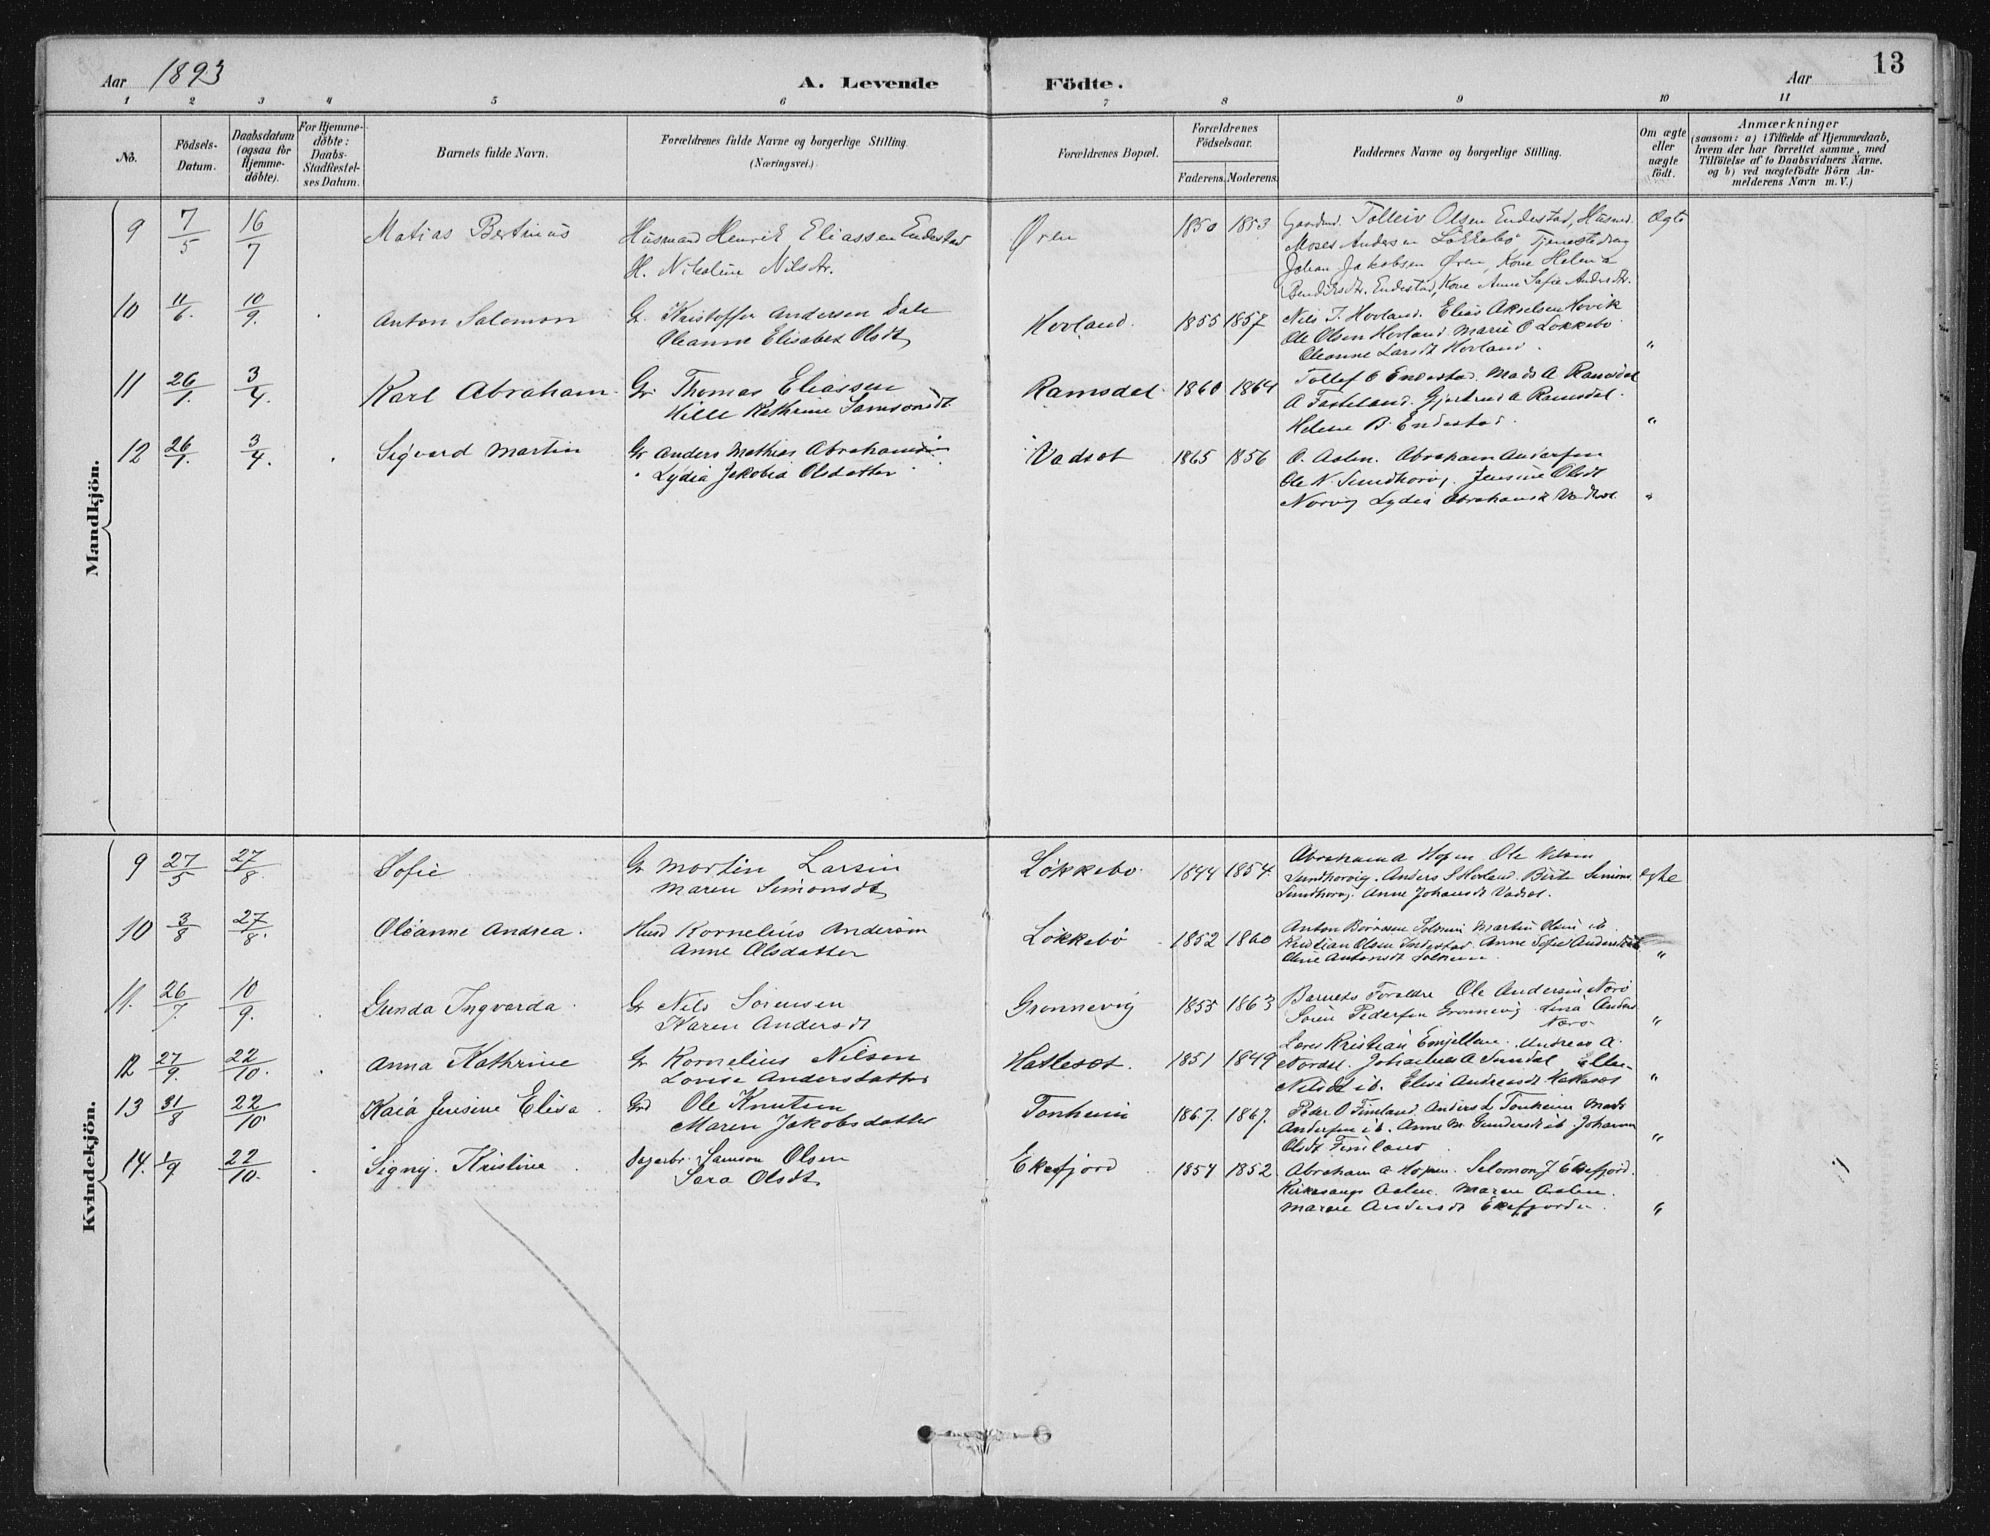 Aar 1893 A. Levende Födte. Aar 13
1 2 3 4 5 6 7 8 9 10 11
No.
Födsels-Datum.
Daabsdatum (ogsaa for Hjemme-döbte).
For Hjemme-döbte: Daabs-Stadfæstel-ses Datum.
Barnets fulde Navn.
Forældrenes fulde Navne og borgerlige Stilling.
(Næringsvei.)
Forældrenes Bopæl.
Forældrenes Födselsaar.
Faderens. Moderens.
Faddernes Navne og borgerlige Stilling.
Om ægte eller uægte födt.
Anmærkninger
(saasom: a) i Tilfælde af Hjemmedaab, hvem der har forrettet samme, med Tilföielse af to Daabsvidners Navne. og b) ved uægtefödte Börn An-melderens Navn m. V.)
Mandkjön.
9 7/5 16/7 Matias Bertinus Husmand Henrik Eliassen Endestad Øren 1850 1853 Gaardmd. Tolleiv Olsen Endestad, Husmd. Ægte
H. Nikoline Nilsdtr. Moses Andersen Løkkebø, Tjenestedreng
Johan Jakobsen Øren, Kone Helena
Bendiksdtr. Endestad, Kone Anne Sofie Andersdtr.
10 11/6 10/9 Anton Salomon G. Kristoffer Andersen Dale Hovland. 1855 1857 Nils T. Hovland. Elias Akselsen Hovik
Oleanne Elisabet Olsdt, Ole Olsen Hovland Marie O Løkkebo
Oleanne Larsdt Hovland. "
11 26/1 3/4 Karl Abraham Gr. Thomas Eliassen Ramsdal 1860 1864 Tollef O Endestad. Mads A Ramsdal
Hille Kathrine Samsonsdt A Fasteland. Gjertrud A Ramsdal.
Helene B. Endestad. "
12 26/1 3/4 Sigvard Martin Gr Anders Mathias Abrahamsen Vadset 1865 1856 O. Aslen. Abraham Andersen
Lydia Jakobia Olsdatter Ole N. Sundhovig. Jensine Olsdt
Norvig Lydia Abrahamsdt Vadset "
Kvindekjön.
9 27/5 27/8 Sofie Gr Martin Larsin Løkkebø 1844 1854 Abraham A Hopen Ole Nilsen ægte
Maren Simonsdt, Sundhovig. Anders S Hovland. Birte Simons
Sundhovig. Anne Johansdt Vadset.
10 3/8 27/8 Oleanne Andrea. Husd Kornelius Andersin Løkkebø 1852 1860 Anton Børresen Martin Olsen ib.
Anne Olsdatter Kristian Olsen Indestad. Anne Sofie Andersdt
Oline Antonsdt "
11. 26/7 10/9 Gunda Ingvarda Gr Nils Sørensen Grønnevig 1855 1863 Barnets Foraldre Ole Andersen Norø
Karen Andersdt Søren Pedersen Grønnevig Lina Anders
Norø "
12 27/9 22/10 Anna Kathrine Gr Kornelius Nilsen Hatleset 1851 1849 Lars Kristian Emjellem. Andreas A.
Lovise Andersdatter Nordal. Johannes A Sundal Ellen
Nilsdt ib. Elise Andreasdt Hatleset "
13 31/8 22/10 Kaia Jensine Elisa Grd Ole Knutsen Tonheim 1867. 1867. Peder O Fimland. Anders L Tonheim Mads
Maren Jakobsdatter Andersen ib. Anne M. Gundersdt ib Johanna
Olsdt Fimland "
14. 1/9 22/10 Signy. Kristine Samson Olsen Ekefjord 1854 1852 Abraham A Hopen. Salomon J Ekefjord.
Sara Olsdt, Kirkesangr Aslen. Maren Aslen.
Maren Andersdt Ekefjorden. "